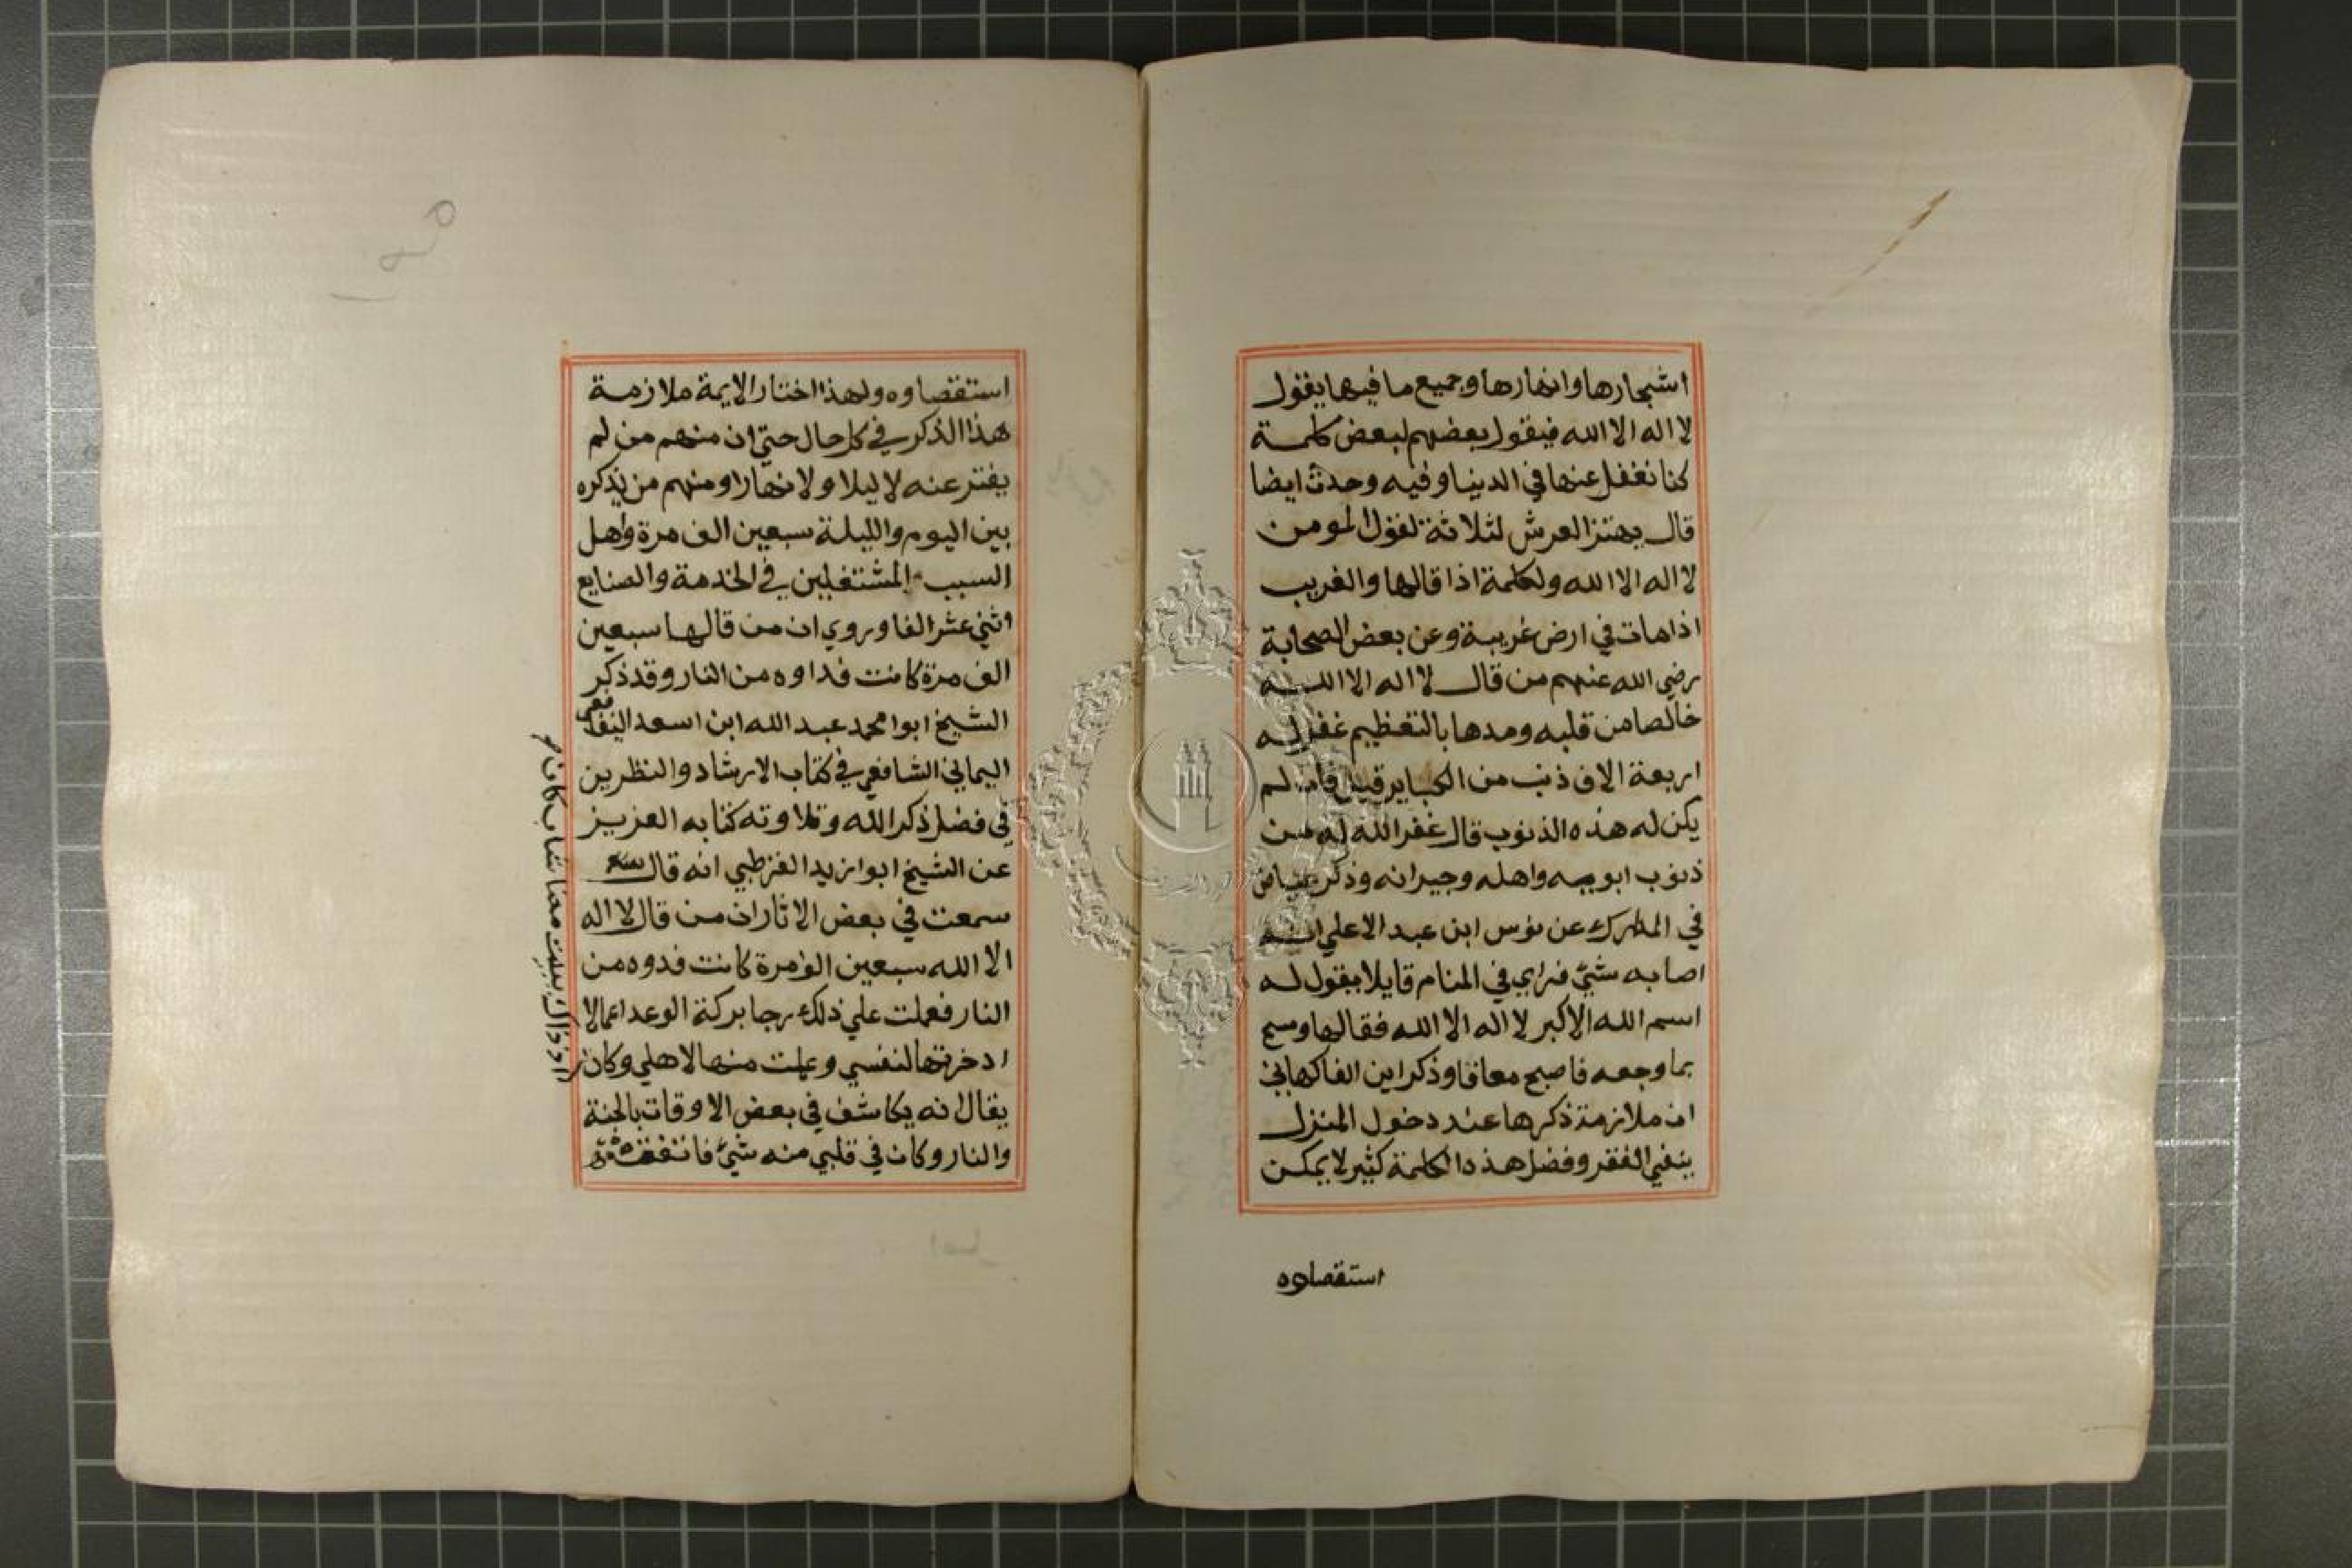 اشجارها وانهارها وجميع ما فيها يقول
لا اله الا الله فيقول بعضهم لبعض كلمة
كنا نغفل عنها في الدنيا وفيه وحدث ايضا
قال يهتز العرش لثلاثة لقول المومن
لا اله الا الله ولكلمة اذا قالها والغريب
اذا مات في ارض غريبة وعن بعض الصحابة
رضي الله عنهم من قال لا اله الا الله
خالصا من قلبه ومدها بالتعظيم غفر له
اربعة الاف ذنب من الكباير قيل فان لم
يكن له هذه الذنوب قال غفر الله له من
ذنوب ابويه واهله وجيرانه وذكر عياض
في المدارك عن يونس ابن عبد الاعلي انه
اصابه شيء فراي في المنام قايلا يقول له
اسم الله الاكبر لا اله الا الله فقالها ومسح
بما وجعه فاصبح معافا وذكر ابن الفاكهاني
ان ملازمة ذكرها عند دخول المنزل
ينفي الفقر وفضل هذه الكلمة كثير لا يمكن
استقصاوه
استقصاوه ولهذا اختار الايمة ملازمة
هذا الذكر في كل حال حتي ان منهم من لم
يفتر عنه لا ليلا ولا نهارا ومنهم من يذكره
بين اليوم والليلة سبعين الف مرة واهل
السبب المشتغلين في الخدمة والصنايع
اثني عشر الفا وروي ان من قالها سبعين
الف مرة كانت فداوه من النار وقد ذكر
الشيخ ابوا محمد عبد الله ابن اسعد اليفا
فعي
اليماني الشافعي في كتاب الارشاد والنظرين
في فضل ذكر الله وتلاوته كتابه العزيز
عن الشيخ ابوا زيد القرطبي انه قال
سمعت في بعض الاثار ان من قال لا اله
الا الله سبعين الف مرة كانت فدوه من
النار فعملت علي ذلك رجا بركة الوعد اعمالا
ادخرتها لنفسي وعملت منها لاهلي وكان
اذ ذاك يبيت معنا شاب كان
يقال انه يكاشف في بعض الاوقات بالجنة
والنار وكان في قلبي منه شيء فاتفق